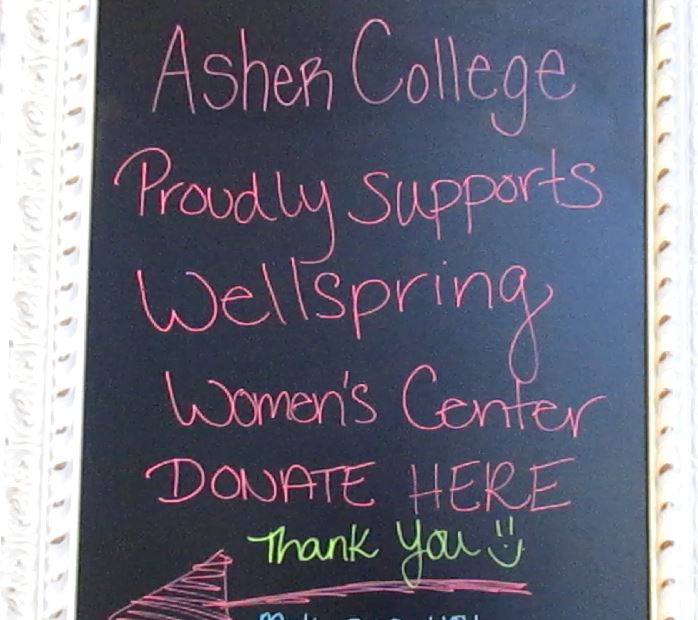 Asher College
Proudly Supports
Wellspring
Women's Center
DONATE HERE
Thank You